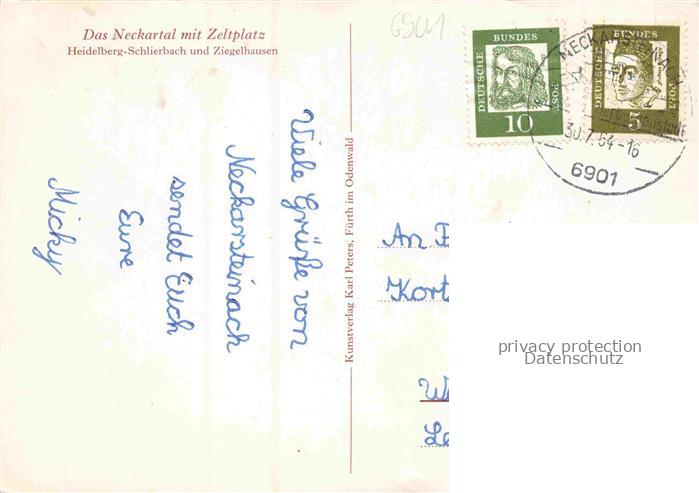 Das Neckartal mit Zeltplatz
Heidelberg-Schlierbach und Ziegelhausen
6901
Viele Grüße von
Neckarsteinach
sendet Euch
Eure
Micky
Kunstverlag Karl Peters, Fürth im Odenwald
DEUTSCHE BUNDES POST
10
DEUTSCHE BUNDES POST
5
30.7.64-16
6901
An
Kort
privacy protection
Datenschutz